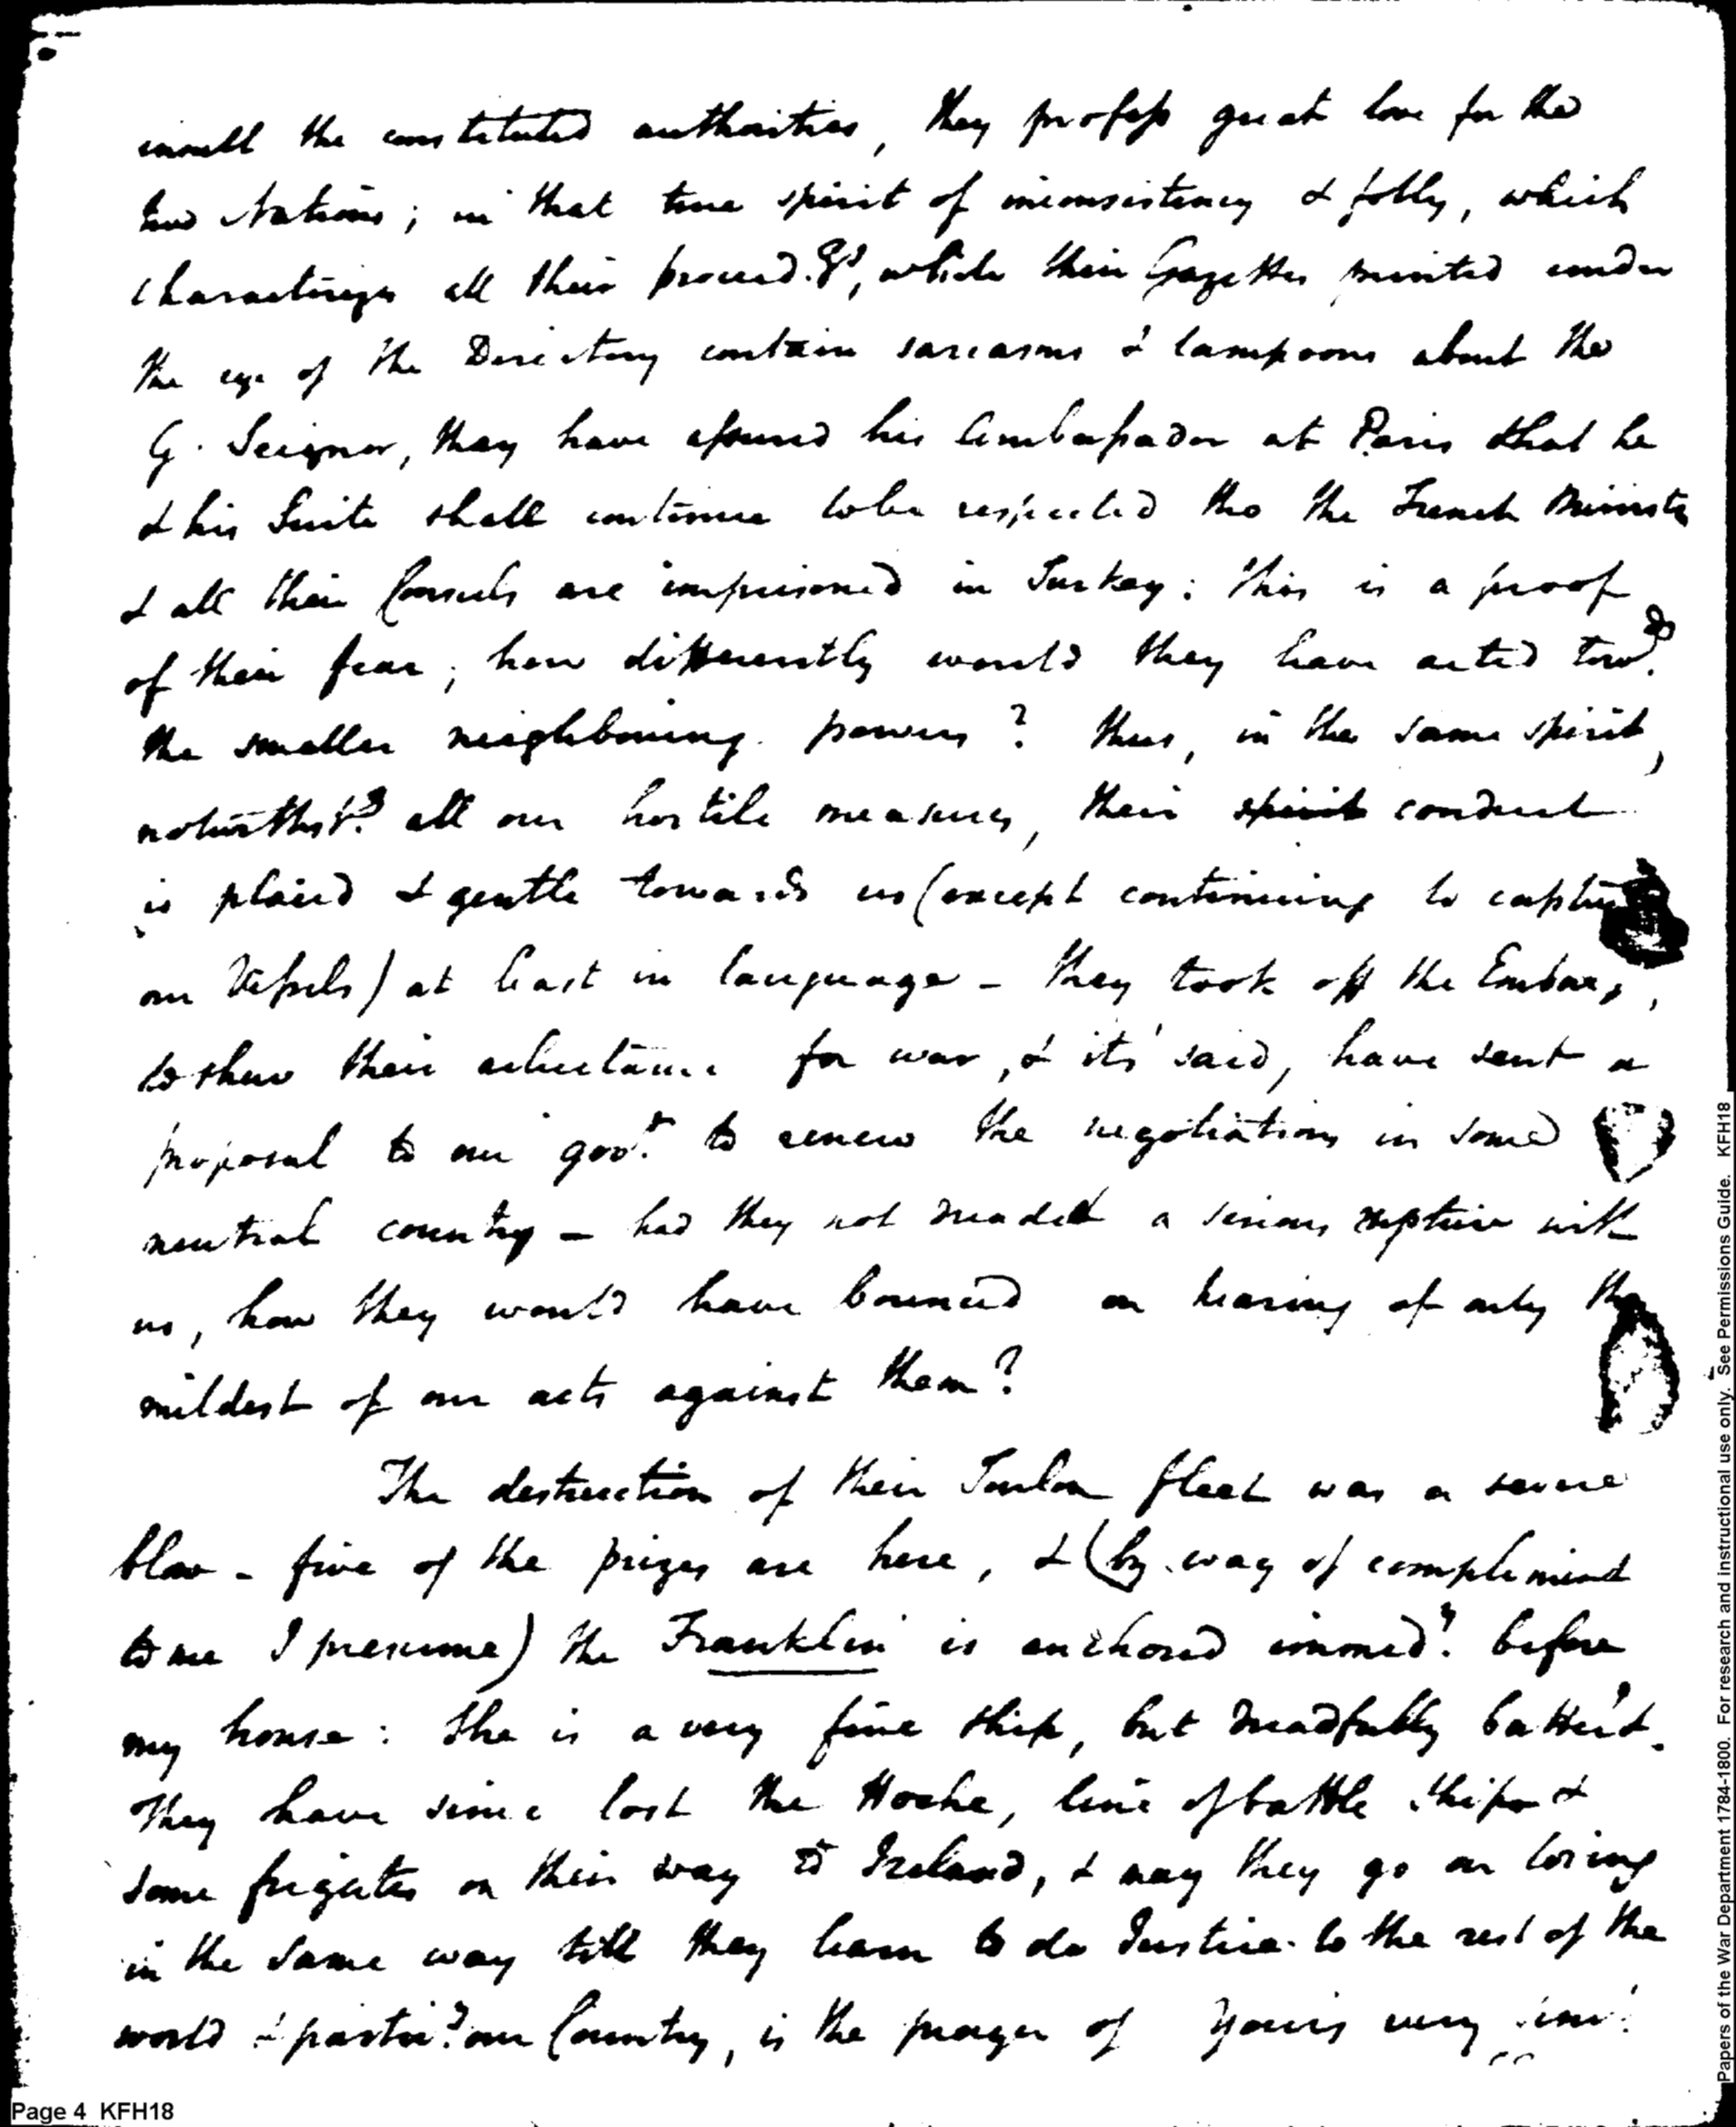 insult the constituted authorities, they profess great love for the
two Nations; in that true spirit of inconsistency & folly, which
characterizes all their proceed.gs, while their Gazettes printed under
the eye of the Directory contain sarcasms & lampoons about the
G. Seignor, they have assured his Ambassador at Paris that he
& his Suite shall continue to be respected tho the French Ministr
& all their Consuls are imprisoned in Turkey: this is a proof
of their fear; how differently would they have acted towds.
the smaller neighbouring powers? thus, in the same spirit,
notwithstg. all our hostile measures, their spirit conduct
is placid & gentle towards us (except continuing to capture
our Vessels) at least in language - they took off the Embar,
to shew their reluctance for war, & its' said, have sent a
proposal to our govt. to renew the negotiations in some
neutral country - had they not dreaded a serious rupture with
us, how they would have bounced on hearing of only the
mildest of our acts against them?
The destruction of their Toulon fleet was a severe
blow - five of the prizes are here, & (by way of compliment
to me I presume) the Franklin is anchored immedy. before
my house: She is a very fine ship, but dreadfully batter'd.
They have since lost the Hoche, line of battle ship &
some frigates on their way to Ireland, & may they go on losing
in the same way till they learn to do Justice to the rest of the
world & partiy. our Country, is the prayer of Yours very sinc.
Page 4 KFH18
Papers of the War Department 1784-1800. For research and instructional use only. See Permissions Guide. KFH18